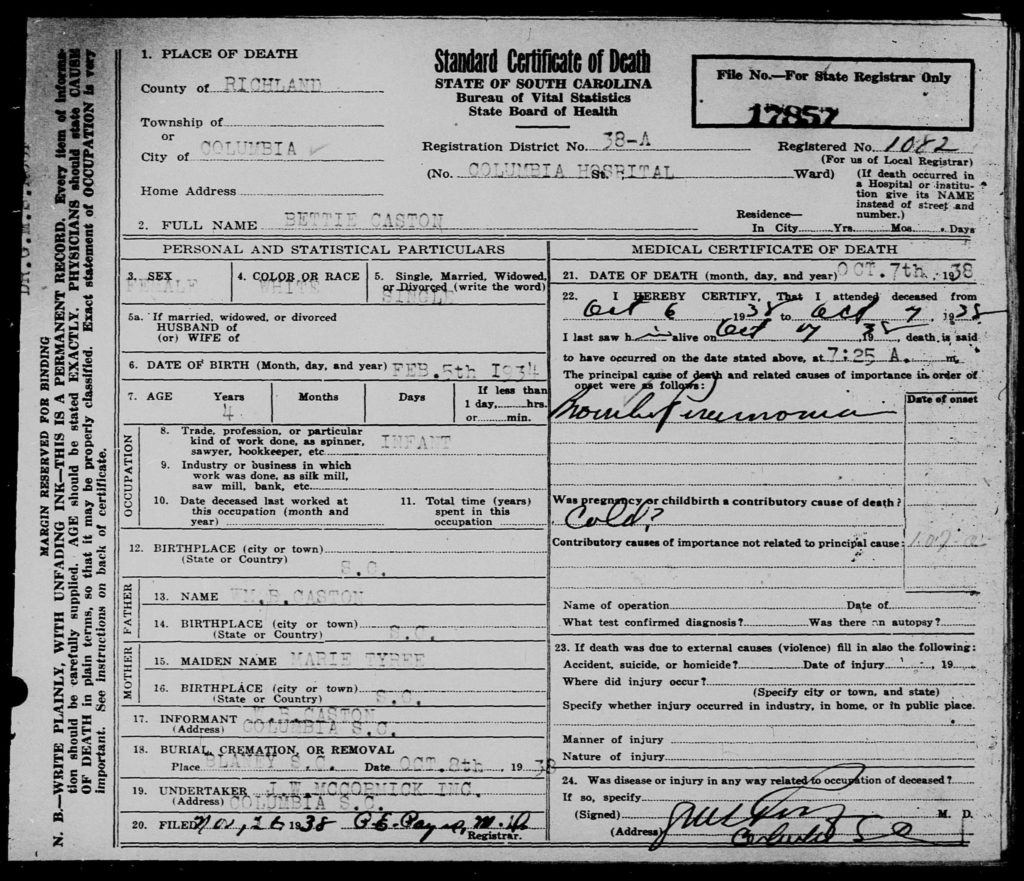 N. B.—WRITE PLAINLY, WITH UNFADING INK—THIS IS A PERMANENT RECORD. Every item of informa-
tion should be carefully supplied. AGE should be stated EXACTLY. PHYSICIANS should state CAUSE
OF DEATH in plain terms, so that it may be properly classified. Exact statement of OCCUPATION is very
important. See instructions on back of certificate.
MARGIN RESERVED FOR BINDING
1. PLACE OF DEATH
County of RICHLAND
Township of
or
City of COLUMBIA
Home Address
2. FULL NAME BETTIE CASTON
Standard Certificate of Death
STATE OF SOUTH CAROLINA
Bureau of Vital Statistics
State Board of Health
Registration District No. 38-A
(No. COLUMBIA HOSPITAL St. Ward)
File No.—For State Registrar Only
17857
Registered No. 1082
(For us of Local Registrar)
(If death occurred in
a Hospital or institu-
tion give its NAME
instead of street and
number.)
Residence—
In City Yrs. Mos. Days
PERSONAL AND STATISTICAL PARTICULARS
3. SEX
FEMALE
4. COLOR OR RACE
WHITE
5. Single, Married, Widowed,
or Divorced (write the word)
SINGLE
5a. If married, widowed, or divorced
HUSBAND of
(or) WIFE of
6. DATE OF BIRTH (Month, day, and year) FEB. 5th 1934
7. AGE Years Months Days If less than
1 day, hrs.
or min.
4
OCCUPATION
8. Trade, profession, or particular
kind of work done, as spinner,
sawyer, bookkeeper, etc. INFANT
9. Industry or business in which
work was done, as silk mill,
saw mill, bank, etc.
10. Date deceased last worked at
this occupation (month and
year)
11. Total time (years)
spent in this
occupation
12. BIRTHPLACE (city or town)
(State or Country)
S.C.
FATHER
13. NAME WM.B.CASTON
14. BIRTHPLACE (city or town)
(State or Country) S.C.
MOTHER
15. MAIDEN NAME MARIE
16. BIRTHPLACE (city or town)
(State or Country) S.C.
17. INFORMANT W B CASTON
(Address) COLUMBIA S.C.
18. BURIAL, CREMATION, OR REMOVAL
Place BLANEY S.C. Date OCT. 8th, 1938
19. UNDERTAKER J.W. MCCORMICK INC.
(Address) COLUMBIA S.C.
20. FILED Nov, 26 1938 Payne, M.D.
Registrar.
MEDICAL CERTIFICATE OF DEATH
21. DATE OF DEATH (month, day, and year) OCT. 7th, 1938
22. I HEREBY CERTIFY, That I attended deceased from
Oct 6 1938 to Oct 7, 1938
I last saw h alive on Oct 7 1938 death, is said
to have occurred on the date stated above, at 7:25 A. m.
The principal cause of death and related causes of importance in order of
onset were as follows:
Date of onset
Broncho Pneumonia
Was pregnancy or childbirth a contributory cause of death?
Cold?
Contributory causes of importance not related to principal cause:
Name of operation Date of
What test confirmed diagnosis? Was there an autopsy?
23. If death was due to external causes (violence) fill in also the following:
Accident, suicide, or homicide? Date of injury , 19
Where did injury occur?
(Specify city or town, and state)
Specify whether injury occurred in industry, in home, or in public place.
Manner of injury
Nature of injury
24. Was disease or injury in any way related to occupation of deceased?
If so, specify
(Signed) M. D.
(Address) Columbia S C